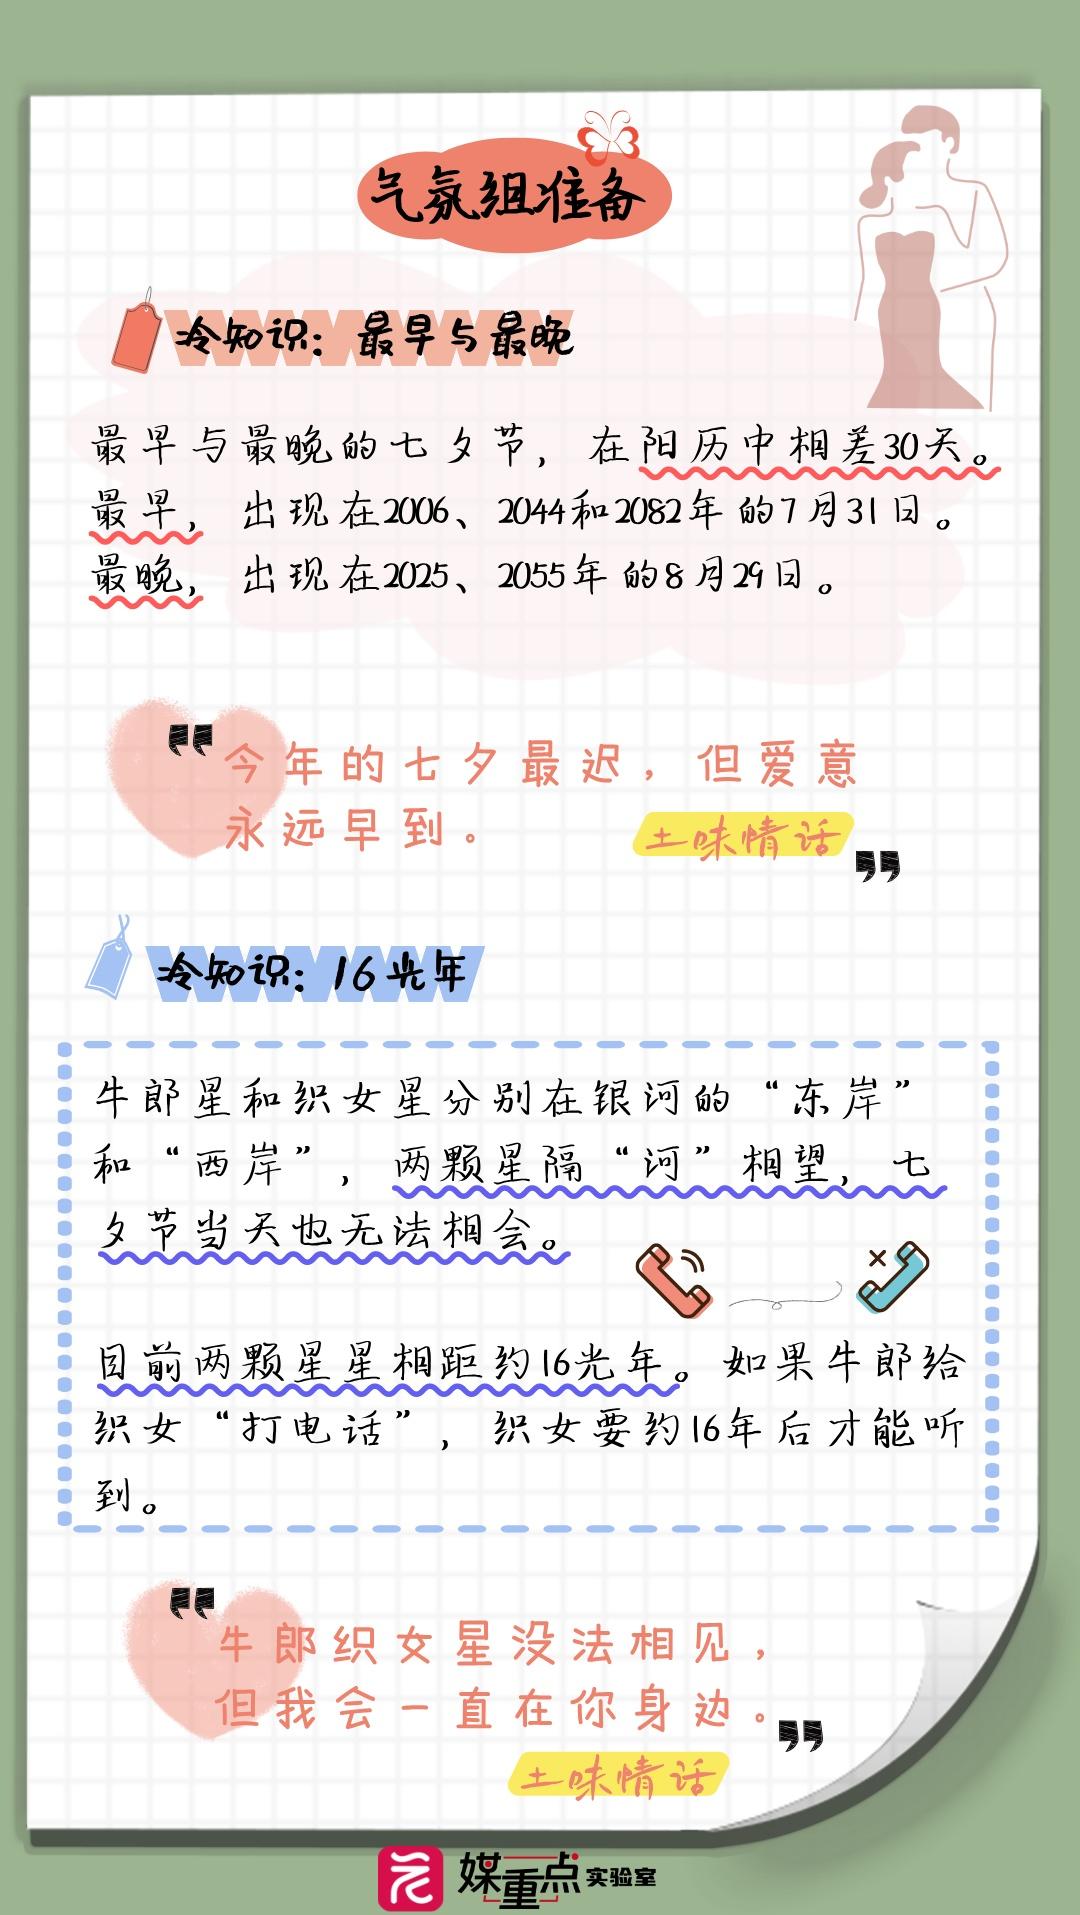 气氛组准备
冷知识：最早与最晚
最早与最晚的七夕节，在阳历中相差30天。
最早，出现在2006、2044和2082年的7月31日。
最晚，出现在2025、2055年的8月29日。
今年的七夕最迟，但爱意
永远早到。
土味情话
冷知识：16光年
牛郎星和织女星分别在银河的“东岸”
和“西岸”，两颗星隔“河”相望，七
夕节当天也无法相会。
目前两颗星星相距约16光年。如果牛郎给
织女“打电话”，织女要约16年后才能听
到。
牛郎织女星没法相见，
但我会一直在你身边。
土味情话
媒重点实验室